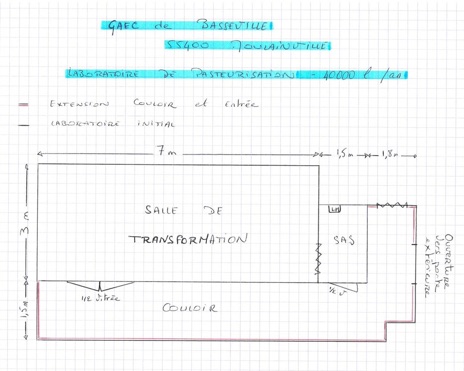 GAEC de BASSEVILLE
55400 MOULAINVILLE
LABORATOIRE DE PASTEURISATION - 40000 l /an
EXTENSION COULOIR et Entrée
LABORATOIRE INITIAL
7 m
1,5 m
1,8 m
3 m
SALLE DE
TRANSFORMATION
LM
SAS
OUVERTURE
vers porte
extérieure
1/2 vitrée
1/2 v
1,5 m
COULOIR